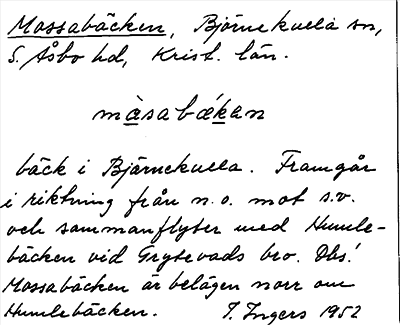 Mossabäcken, Björnekulla sn,
S. Åsbo hd, Krist. län.
màsabǽkan
bäck i Björnekulla. Framgår
i riktning från n.o. mot s.v.
och sammanflyter med Humle-
bäcken vid Grytevads bro. Obs!
Mossabäcken är belägen norr om
Humlebäcken. I. Ingers 1952